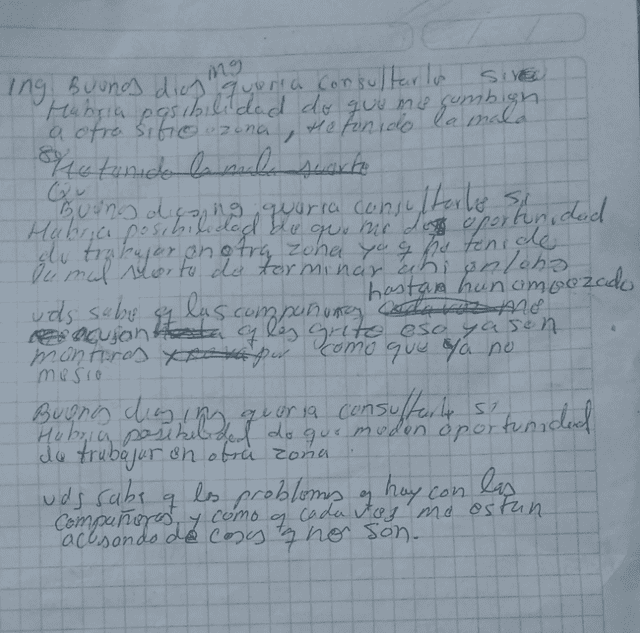 Ing Buenos dias ing queria consultarle si
Habria posibilidad de que me cambien
a otro sitio o zona, He tenido la mala
He tenido la mala suerte
Buenos dias ing queria consultarle si
Habria posibilidad de que me des oportunidad
de trabajar en otra zona ya q he tenido
la mal suerte de terminar ahi en
hasta han amenazado
uds sabe q las compañeras cada vez me
acusan hasta q les grito eso ya son
mentiras y por como que ya no
Buenos dias ing queria consultarle si
Habria posibilidad de que me den oportunidad
de trabajar en otra zona.
uds sabe q los problemas q hay con las
compañeras y como q cada ves me estan
acusando de cosas q no son.